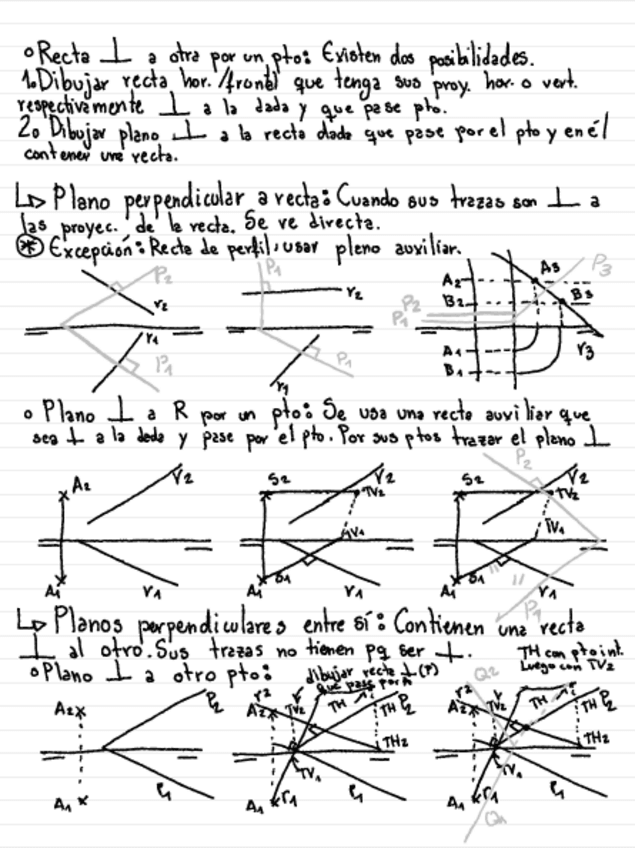 o Recta ⊥ a otra por un pto: Existen dos posibilidades.
1. Dibujar recta hor./frontal que tenga sus proy. hor. o vert.
respectivamente ⊥ a la dada y que pase pto.
2. Dibujar plano ⊥ a la recta dada que pase por el pto y en él
contener una recta.
↳ Plano perpendicular a recta: Cuando sus trazas son ⊥ a
las proyec. de la recta. Se ve directa.
* Excepción: Recta de perfil, usar plano auxiliar.
P2 r2 r1 P1
P1 r2 P1 r1
A2 A3 P3
B2 B3
P2
P1
A1 r3
B1
o Plano ⊥ a R por un pto: Se usa una recta auxiliar que
sea ⊥ a la dada y pase por el pto. Por sus ptos trazar el plano ⊥
A2 r2 A1 r1
S2 r2 TV2 TV1 A1 S1 r1
S2 P2 r2 TV2 TV1 A1 S1 r1 P1
↳ Planos perpendiculares entre sí: Contienen una recta
⊥ al otro. Sus trazas no tienen pq ser ⊥.
TH con pto int.
Luego con TV2
o Plano ⊥ a otro pto:
dibujar recta ⊥ (P)
que pase por A
A2 P2 A1 P1
r2 A2 TV2 TH TH P2 TH2 TV1 A1 r1 P1
Q2 r2 A2 TV TH i TH P2 TH2 TV1 A1 r1 P1 Q1